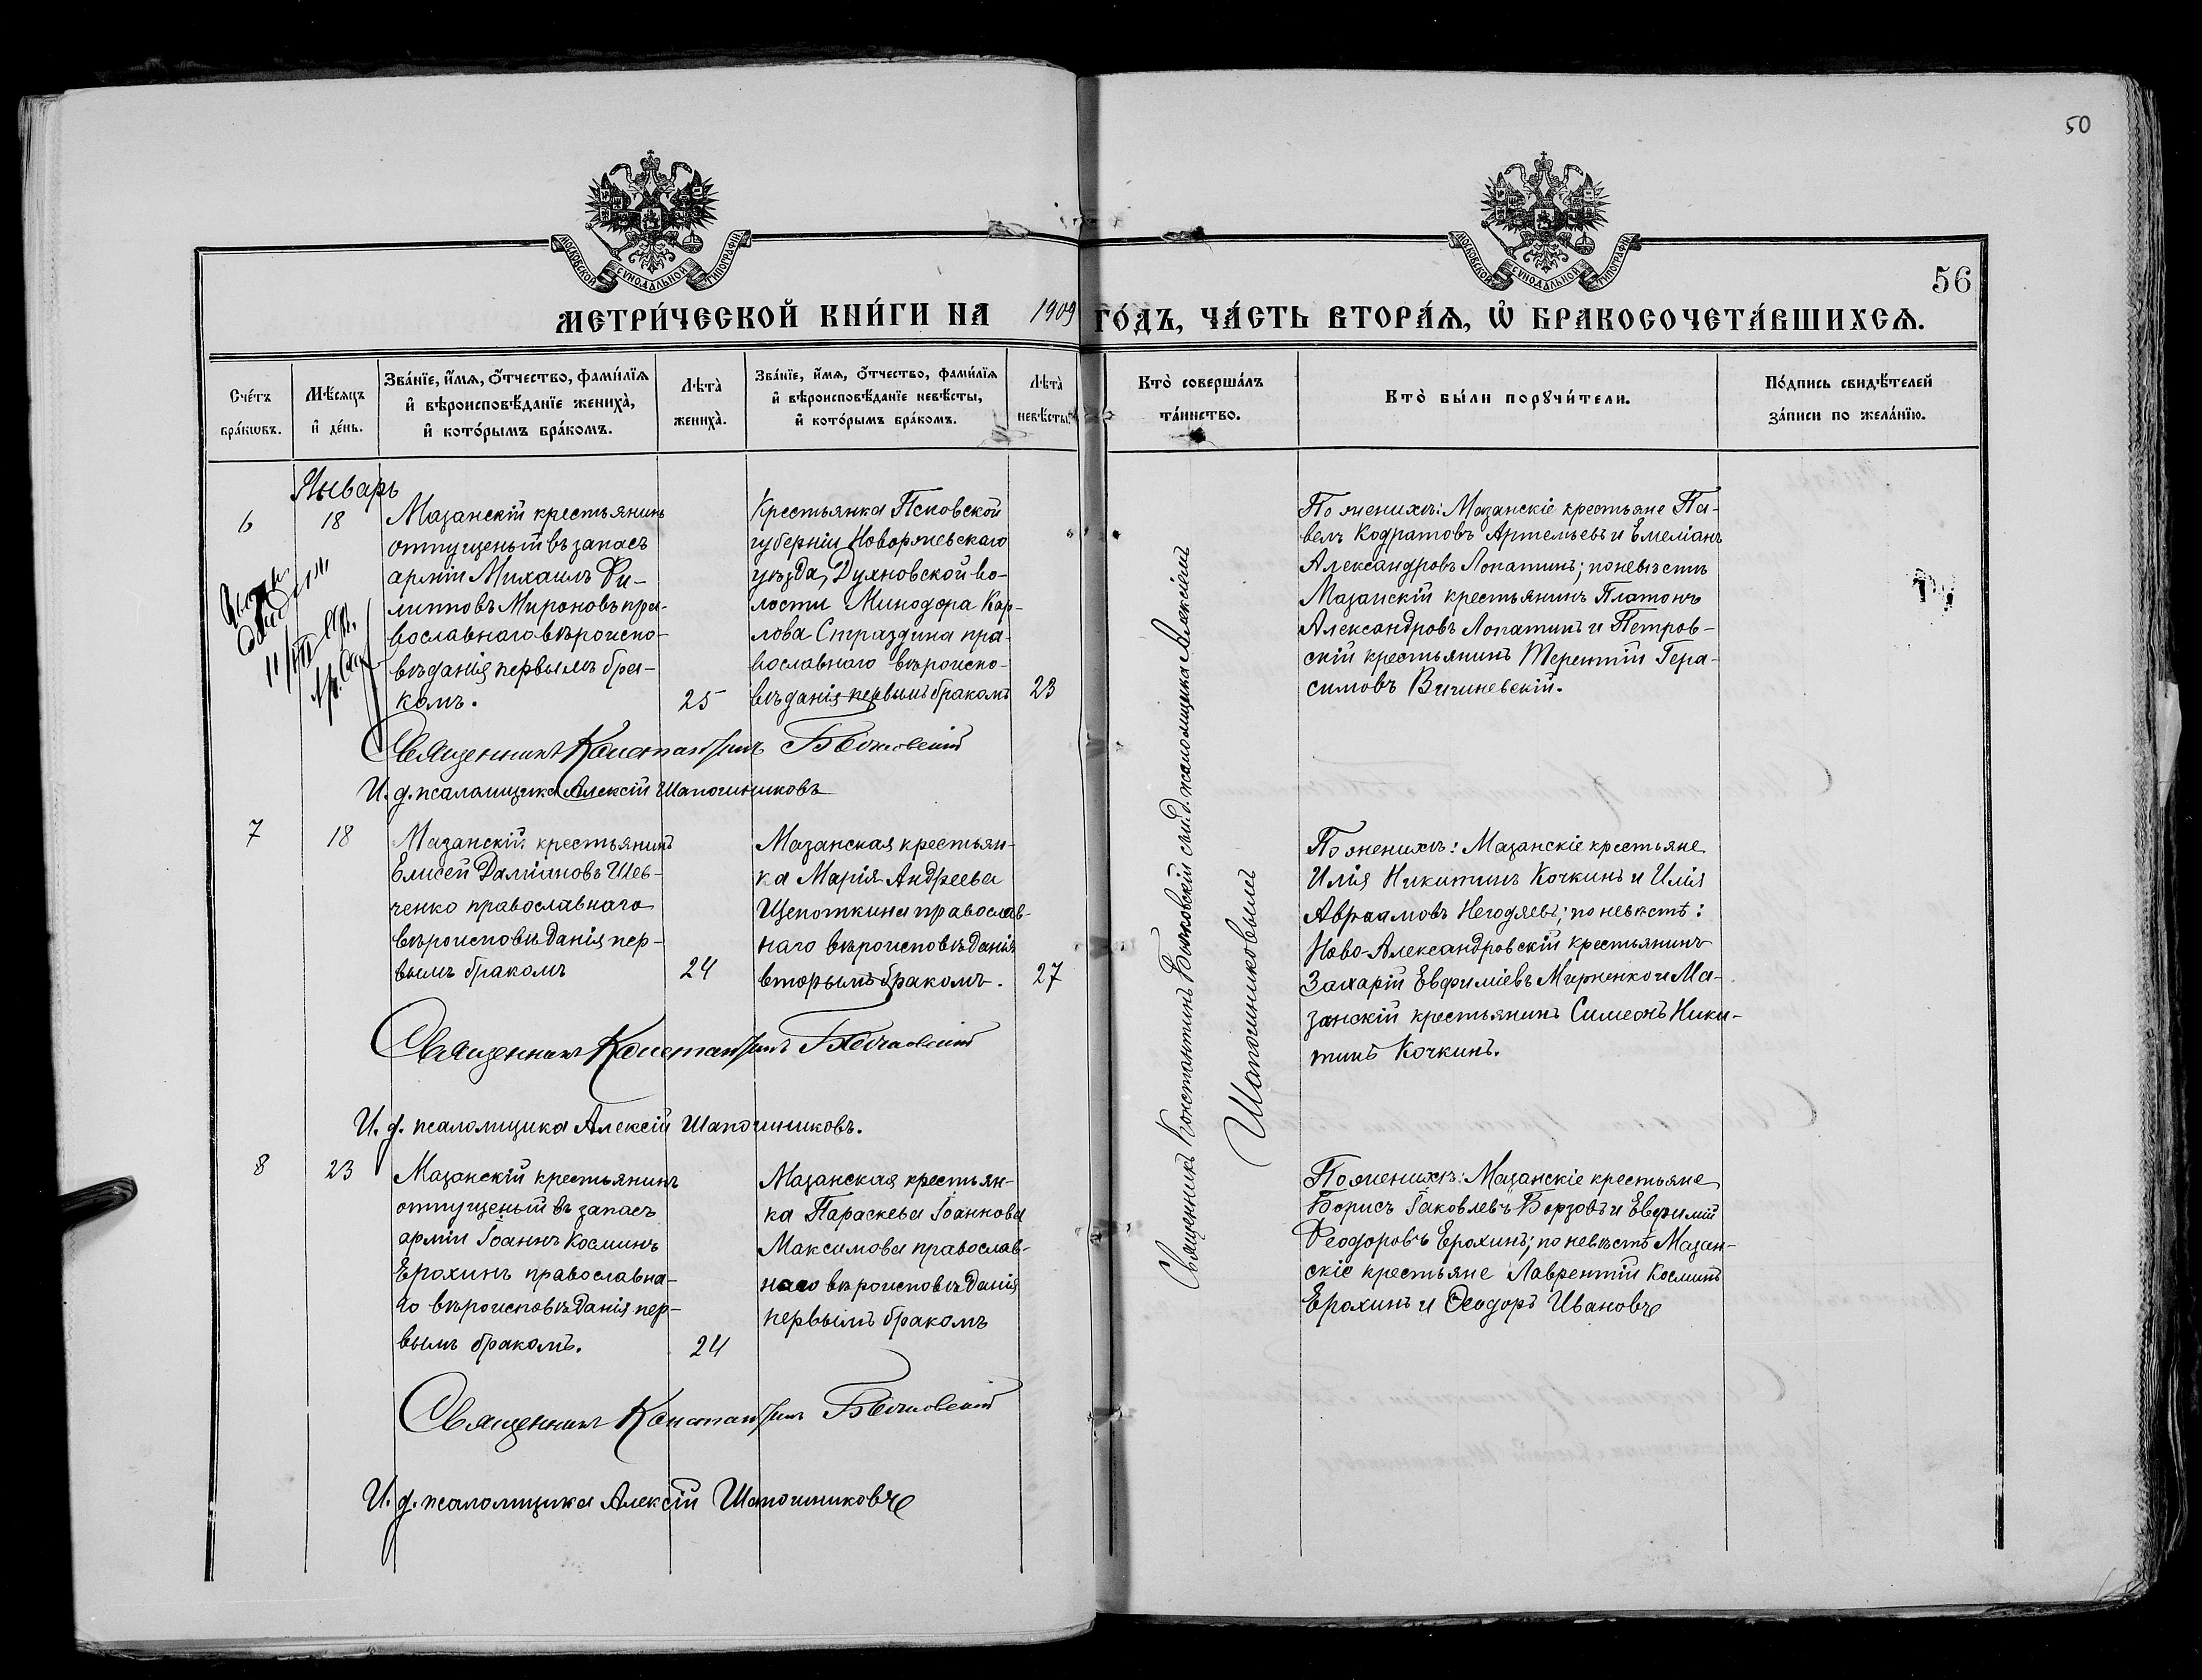 50
МОСКОВСКОЙ СУНОДАЛЬНОЙ ТИПОГРАФІИ
МОСКОВСКОЙ СУНОДАЛЬНОЙ ТИПОГРАФІИ
56
МЕТРИ́ЧЕСКОЙ КНИ́ГИ НА 1909 ГО́ДЪ, ЧА́СТЬ ВТОРА́Я, Ѽ БРАКОСОЧЕТА́ВШИХСЯ.
Сче́тъ
бра́кѡвъ.
Мѣ́сяцъ
и҆ де́нь.
Зва́нїе, и҆́мя, ѻ҆́тчество, фами́лїя
и҆ вѣроисповѣ́данїе жениха̀,
и҆ кото́рымъ бра́комъ.
Лѣта̀
жениха̀.
Зва́нїе, и҆́мя, ѻ҆́тчество, фами́лїя
и҆ вѣроисповѣ́данїе невѣ́сты,
и҆ кото́рымъ бра́комъ.
Лѣта̀
невѣ́сты.
Кто̀ соверша́лъ
та́инство.
Кто̀ бы́ли порꙋчи́тели.
По́дпись свидѣ́телей
за́писи по жела́нїю.
Январь
6
18
Мазанскій крестьянинъ
отпущеный въ запасъ
арміи Михаилъ Фи-
липповъ Мироновъ пра-
вославнаго вѣроиспо-
вѣданія первымъ бра-
комъ.
25
Крестьянка Псковской
губерніи Новоржевскаго
уѣзда, Духновской во-
лости Минодора Кар-
лова Страздина пра-
вославнаго вѣроиспо-
вѣданія первымъ бракомъ
23
По женихѣ: Мазанскіе крестьяне Па-
велъ Кодратовъ Артемьевъ и Емеліанъ
Александровъ Лопатинъ; по невѣстѣ
Мазанскій крестьянинъ Платонъ
Александровъ Лопатинъ и Петров-
скій крестьянинъ Терентій Гера-
симовъ Вишневскій.
Священникъ Константинъ
И. д. псаломщика Алексій Шапошниковъ
7
18
Мазанскій крестьянинъ
Елисей Даміановъ Шев-
ченко православнаго
вѣроисповѣданія пер-
вымъ бракомъ
24
Мазанская крестьян-
ка Марія Андреева
Щепоткина православ-
наго вѣроисповѣданія
вторымъ бракомъ.
27
По женихѣ: Мазанскіе крестьяне
Илія Никитинъ Кочкинъ и Илія
Авраамовъ Негодяевъ; по невѣстѣ:
Ново-Александровскій крестьянинъ
Захарій Евфиміевъ Марченко и Ма-
занскій крестьянинъ Симеонъ Ники-
тинъ Кочкинъ.
Священникъ Константинъ
И. д. псаломщика Алексій Шапошниковъ.
8
23
Мазанскій крестьянинъ
отпущеный въ запасъ
арміи Іоаннъ Косминъ
Ерохинъ православна-
го вѣроисповѣданія пер-
вымъ бракомъ.
24
Мазанская крестьян-
ка Параскева Іоаннова
Максимова православ-
наго вѣроисповѣданія
первымъ бракомъ
По женихѣ: Мазанскіе крестьяне
Борисъ Іаковлевъ Борзовъ и Евфимій
Феодоровъ Ерохинъ; по невѣстѣ Мазан-
скіе крестьяне Лаврентій Косминъ
Ерохинъ и Ѳеодоръ Ивановъ
Священникъ Константинъ
И. д. псаломщика Алексій Шапошниковъ
Священникъ Константинъ съ и. д. псаломщика Алексіемъ
Шапошниковымъ